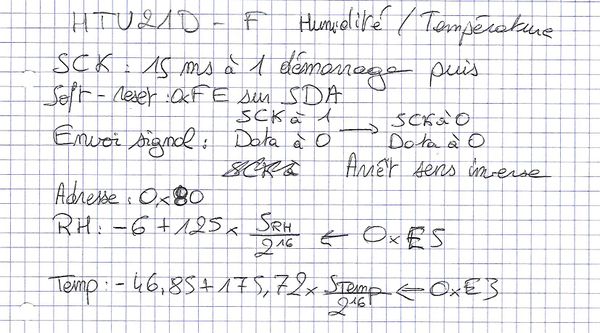 HTU21D - F Humidité / Température
SCK : 15 ms à 1 démarrage puis
Soft-reset : 0xFE sur SDA
SCK à 1 → SCK à 0
Envoi signal : Data à 0 Data à 0
Arrêt sens inverse
Adresse : 0x80
RH : -6 + 125 x SRH / 2^16 ← 0xE5
Temp : -46,85 + 175,72 x STemp / 2^16 ← 0xE3